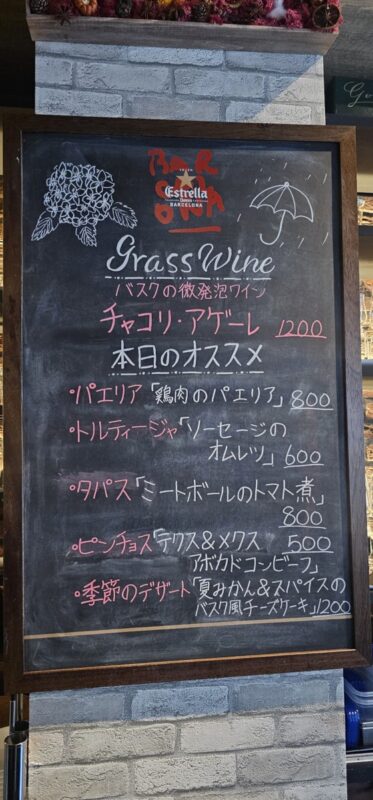 BAR
Estrella
Damm
BARCELONA
ONA
Grass Wine
バスクの微発泡ワイン
チャコリ・アゲーレ 1200
本日のオススメ
・パエリア「鶏肉のパエリア」800
・トルティージャ「ソーセージの
オムレツ」600
・タパス「ミートボールのトマト煮」
800
・ピンチョス「テクス&メクス 500
アボカドコンビーフ」
・季節のデザート「夏みかん&スパイスの
バスク風チーズケーキ」1200